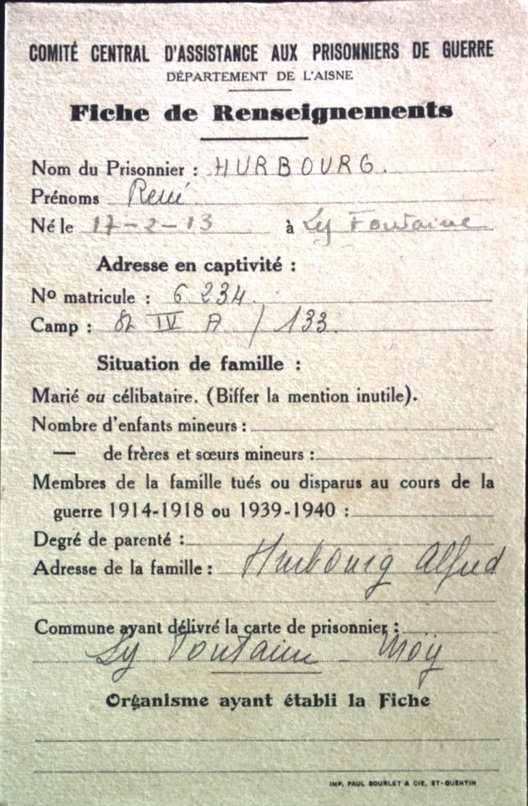 COMITÉ CENTRAL D'ASSISTANCE AUX PRISONNIERS DE GUERRE
DÉPARTEMENT DE L'AISNE
Fiche de Renseignements
Nom du Prisonnier : HURBOURG.
Prénoms René.
Né le 17-2-13 à Ly Fontaine
Adresse en captivité :
No matricule : 6 234.
Camp : IV A / 133.
Situation de famille :
Marié ou célibataire. (Biffer la mention inutile).
Nombre d'enfants mineurs :
— de frères et sœurs mineurs :
Membres de la famille tués ou disparus au cours de la
guerre 1914-1918 ou 1939-1940 :
Degré de parenté :
Adresse de la famille : Hurbourg Alfred
Commune ayant délivré la carte de prisonnier :
Ly Fontaine - Moÿ
Organisme ayant établi la Fiche
IMP. PAUL BOURLET & CIE, ST-QUENTIN